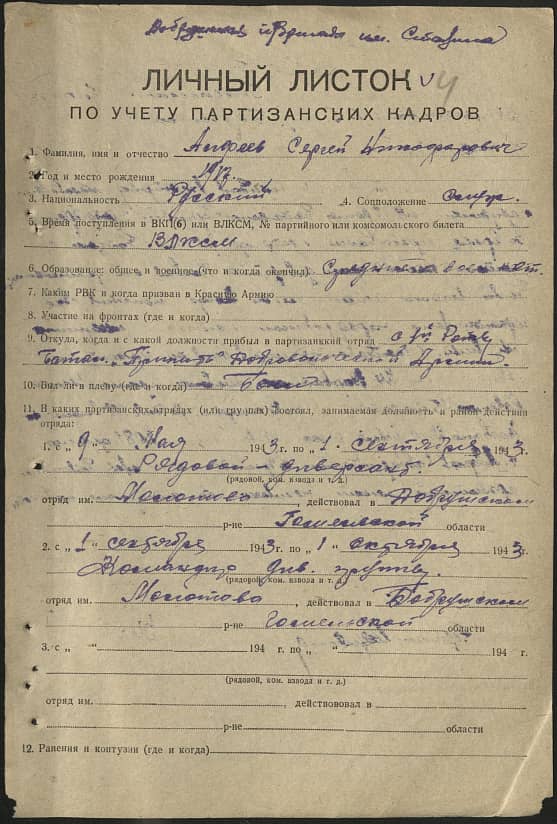 Добрушская бригада им. Сталина
ЛИЧНЫЙ ЛИСТОК
ПО УЧЕТУ ПАРТИЗАНСКИХ КАДРОВ
1. Фамилия, имя и отчество Сергей
2. Год и место рождения 1917
3. Национальность Русский 4. Соцположение Служ.
5. Время поступления в ВКП(б) или ВЛКСМ, № партийного или комсомольского билета
ВЛКСМ
6. Образование: общее и военное (что и когда окончил)
7. Каким РВК и когда призван в Красную Армию
8. Участие на фронтах (где и когда)
9. Откуда, когда и с какой должности прибыл в партизанский отряд с
Батал. "Припять" Добровольческой Армии
10. Был ли в плену (где и когда)
11. В каких партизанских отрядах (или группах) состоял, занимаемая должность и район действия
отряда:
1. с „ 9 “ Мая 1943 г. по „ 1 “ сентября 1943 г.
Рядовой - диверсант
(рядовой, ком. взвода и т. д.)
отряд им. Молотова, действовал в Добрушском
р-не Гомельской области
2. с „ 1 “ сентября 1943 г. по „ 1 “ октября 1943 г.
Командир див. группы.
(рядовой, ком. взвода и т. д.)
отряд им. Молотова, действовал в
р-не Гомельской области
3. с „ “ 194 г. по „ “ 194 г.
(рядовой, ком. взвода и т. д.)
отряд им. , действовал в
р-не области
12. Ранения и контузии (где и когда)